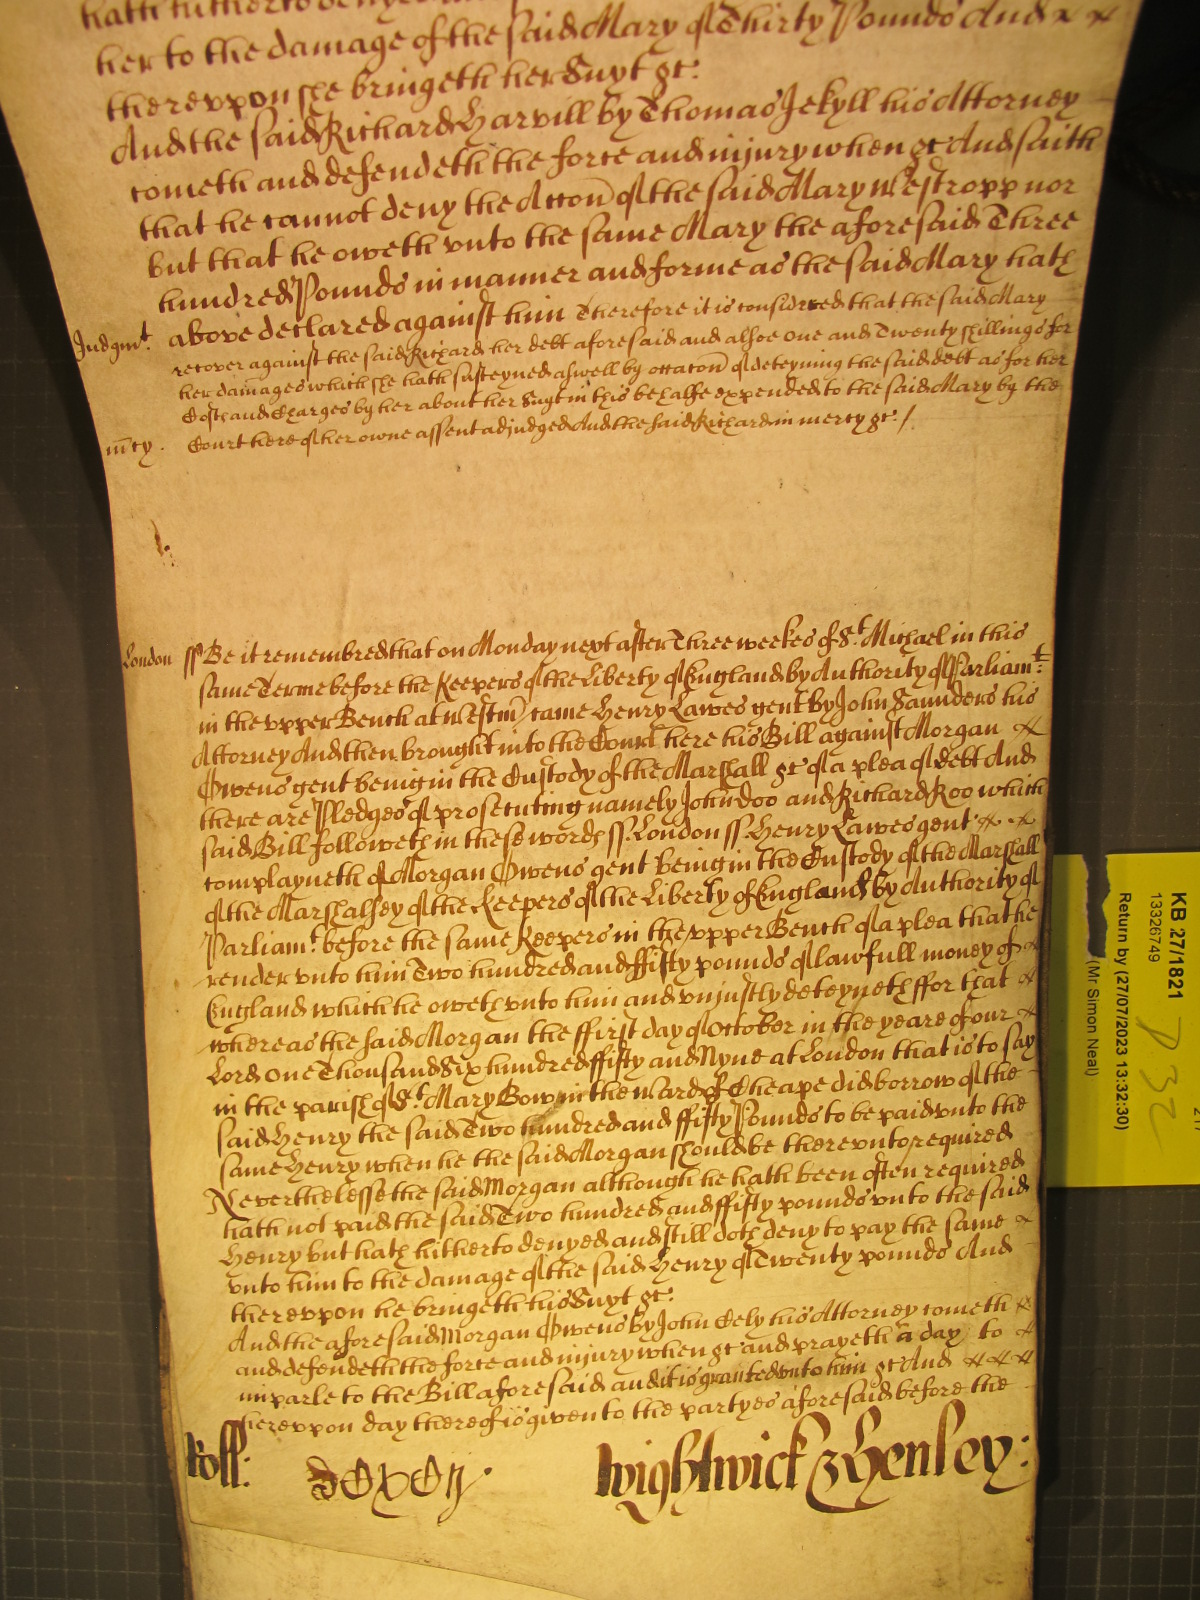 hath hitherto denyed
her to the damage of the said Mary of Thirty Pounds And
therevpon she bringeth her Suyt &c:
And the said Richard Harvill by Thomas Jekyll his Attorney
cometh and defendeth the force and injury when &c And saith
that he cannot deny the Accon of the said Mary Westropp nor
but that he oweth vnto the same Mary the aforesaid Three
hundred Pounds in manner and forme as the said Mary hath
Judgmt. above declared against him Therefore it is considered that the said Mary
recover against the said Richard her debt aforesaid and alsoe one and Twenty shillings for
her damages which she hath susteyned aswell by occacon of deteyning the said debt as for her
Costs and Charges by her about her Suyt in this behalfe expended to the said Mary by the
mcy. Court here of her owne assent adjudged And the said Richard in mercy &c: /
London ss Be it remembred that on Monday next after Three weekes of St. Michael in this
same Terme before the Keepers of the Liberty of England by Authority of Parliamt:
in the vpper Bench at Westm came Henry Lawes gent by John Saunders his
Attorney And then brought into the Court here his Bill against Morgan
Owens gent being in the Custody of the Marshall &c of a plea of debt And
there are Pledges of prosecuting namely John Doo and Richard Roo which
said Bill followeth in these words ss: London ss. Henry Lawes gent
complayneth of Morgan Owens gent being in the Custody of the Marshall
of the Marshalsey of the Keepers of the Liberty of England by Authority of
Parliamt. before the same Keepers in the vpper Bench of a plea that he
render vnto him Two hundred and ffifty pounds of lawfull money of
England which he oweth vnto him and vnjustly deteyneth ffor that
whereas the said Morgan the ffirst day of October in the yeare of our
Lord one Thousand Six hundred ffifty and Nyne at London that is to say
in the parish of St. Mary Bow in the Ward of Cheape did borrow of the
said Henry the said Two hundred and ffifty Pounds to be paid vnto the
same Henry when he the said Morgan should be therevnto required
Neverthelesse the said Morgan although he hath been often required
hath not paid the said Two hundred and ffifty pounds vnto the said
Henry but hath hitherto denyed and still doth deny to pay the same
vnto him to the damage of the said Henry of Twenty pounds And
therevpon he bringeth his Suyt &c:
And the aforesaid Morgan Owens by John Cely his Attorney cometh
and defendeth the force and injury when &c and prayeth a day to
imparle to the Bill aforesaid and it is granted vnto him &c And
herevpon day thereof is given to the partyes aforesaid before the
Roll: Wightwick & Henley:
KB 27/1821
13326749
Return by (27/07/2023 13:32:30)
(Mr Simon Neal)